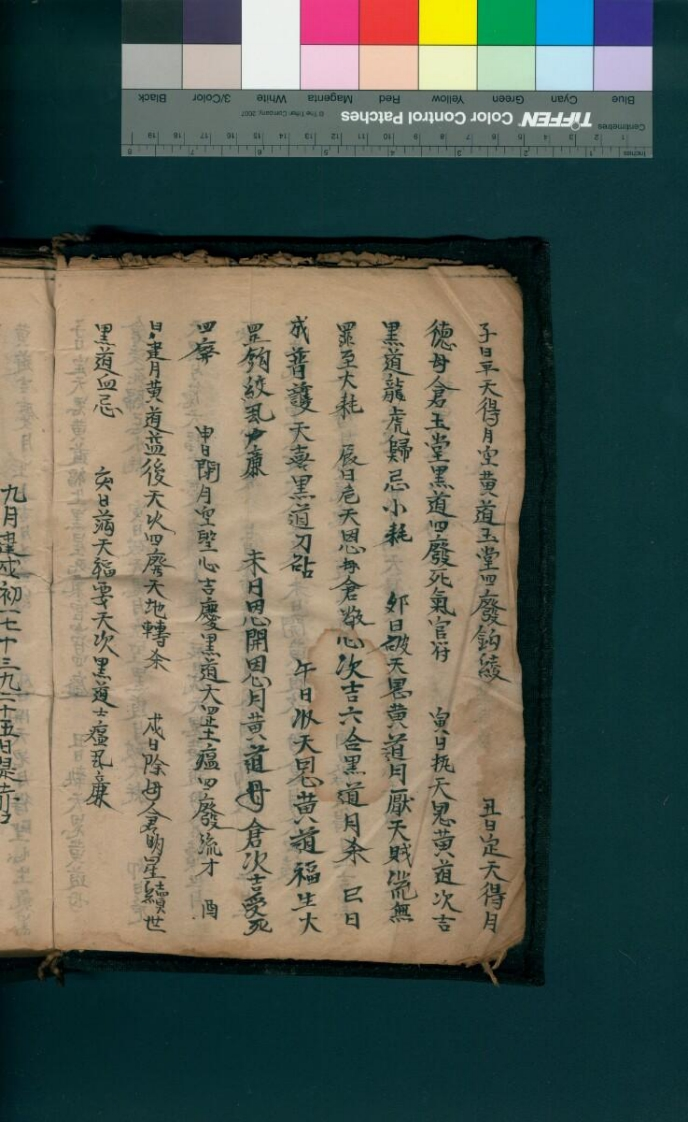 子日平天得月空黄道玉堂四廢鈎絞 丑日定天得月
德母倉玉堂黑道四廢死氣官符 寅日执天恩黄道次吉
黑道龍虎歸忌小耗 卯日破天恩黄道月厭天賊荒無
罡至大耗 辰日危天恩母倉敬心次吉六合黑道月杀 巳日
成普護天喜黑道刀砧 午日收天恩黄道福生大
罡鈎絞 未日恩開恩月黄道母倉次吉受死
四廢 申日閉月空聖心吉慶黑道大罡土瘟四廢流才 酉
日建月黄道益後天次四廢天地轉杀 戌日除母倉明星續世
黑道血忌 亥日满天福要天次黑道土瘟
九月建戌初一七十三九二十五日是
TIFFEN Color Control Patches
© The Tiffen Company, 2007
Centimetres
Inches
Blue Cyan Green Yellow Red Magenta White 3/Color Black
1 2 3 4 5 6 7 8 9 10 11 12 13 14 15 16 17 18 19
1 2 3 4 5 6 7 8